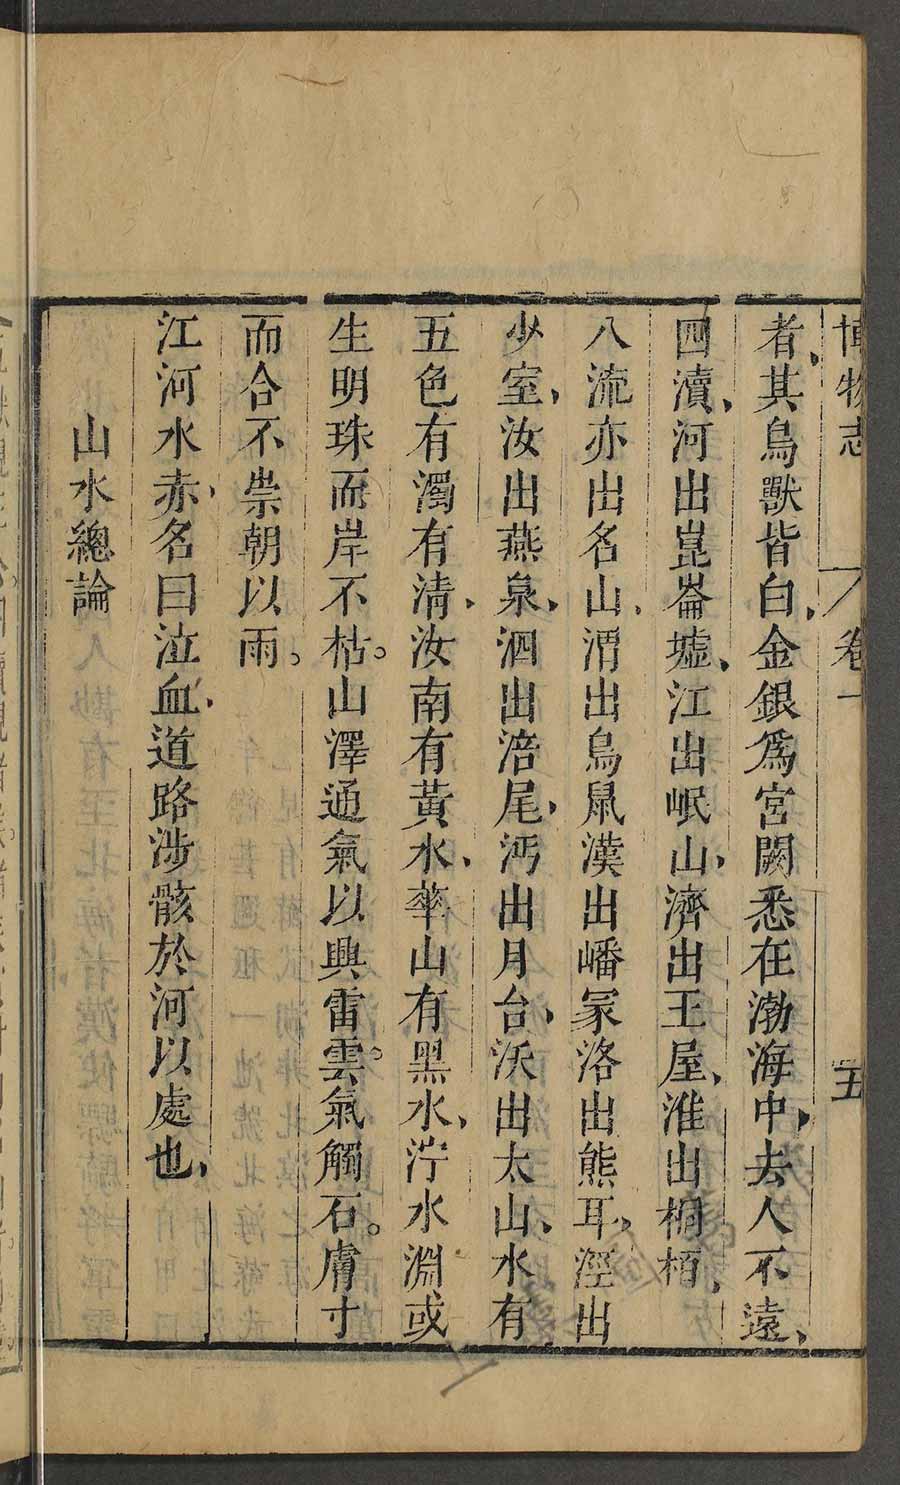 博物志 卷一 五
者、其鳥獸皆白、金銀爲宮闕悉在渤海中、去人不遠、
四瀆、河出崑崙墟、江出岷山、濟出王屋、淮出桐栢、
八流亦出名山、渭出鳥鼠漢出嶓冢洛出熊耳、涇出
少室、汝出燕泉、泗出涪尾、沔出月台、沃出太山、水有
五色有濁有清、汝南有黃水、華山有黑水、泞水淵或
生明珠而岸不枯。山澤通氣以興雷雲。氣觸石。膚寸
而合不崇朝以雨。
江河水赤、名曰泣血、道路涉骸於河以處也、
山水總論